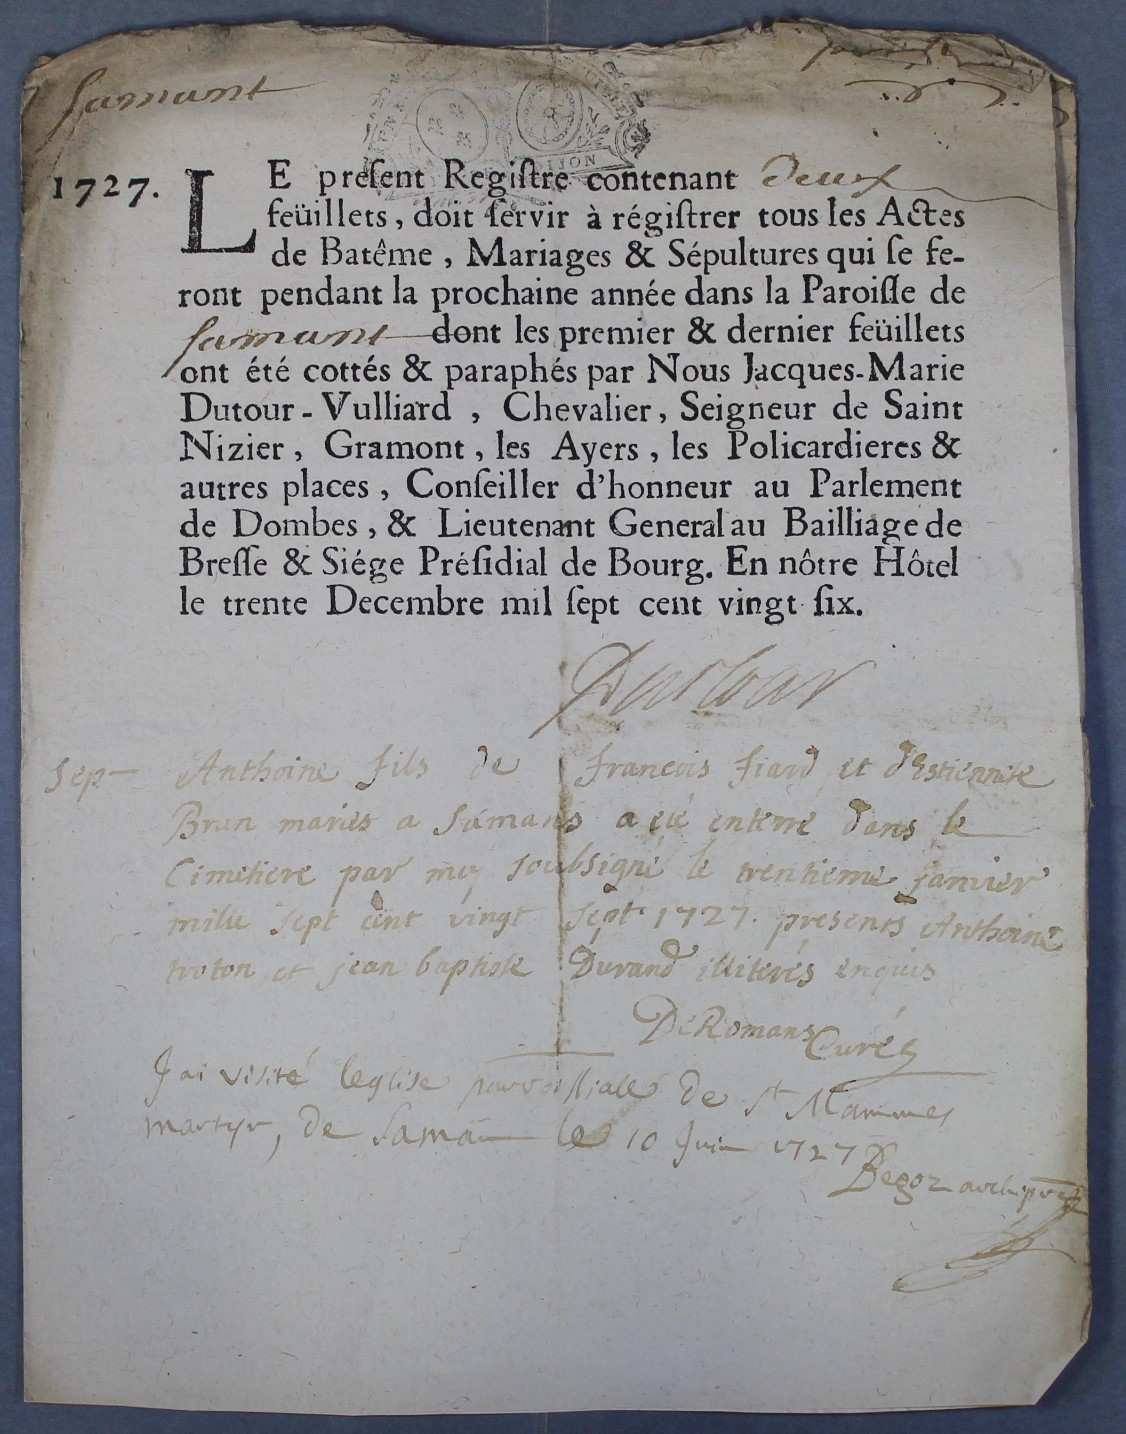 Samant
1727.
LE preſent Regiſtre contenant deux
feüillets, doit ſervir à régiſtrer tous les Actes
de Batême, Mariages & Sépultures qui ſe fe-
ront pendant la prochaine année dans la Paroiſſe de
Samant dont les premier & dernier feüillets
ont été cottés & paraphés par Nous Jacques-Marie
Dutour-Vulliard, Chevalier, Seigneur de Saint
Nizier, Gramont, les Ayers, les Policardieres &
autres places, Conſeiller d'honneur au Parlement
de Dombes, & Lieutenant General au Bailliage de
Breſſe & Siége Préſidial de Bourg. En nôtre Hôtel
le trente Decembre mil ſept cent vingt ſix.
Dutour
Sep Anthoine fils de francois fiard et d'Estiennete
Brun mariés a Samans a eté enterré dans le
Cimetiere par moy soubsigné le trentieme janvier
mille sept cent vingt sept 1727. presents Anthoine
troton et jean baptiste Durand illiterés enquis
DeRomans Curé
J'ai visité leglise parroissiale de St Mammes
martyr, de Saman le 10 Juin 1727
Begoz archipre